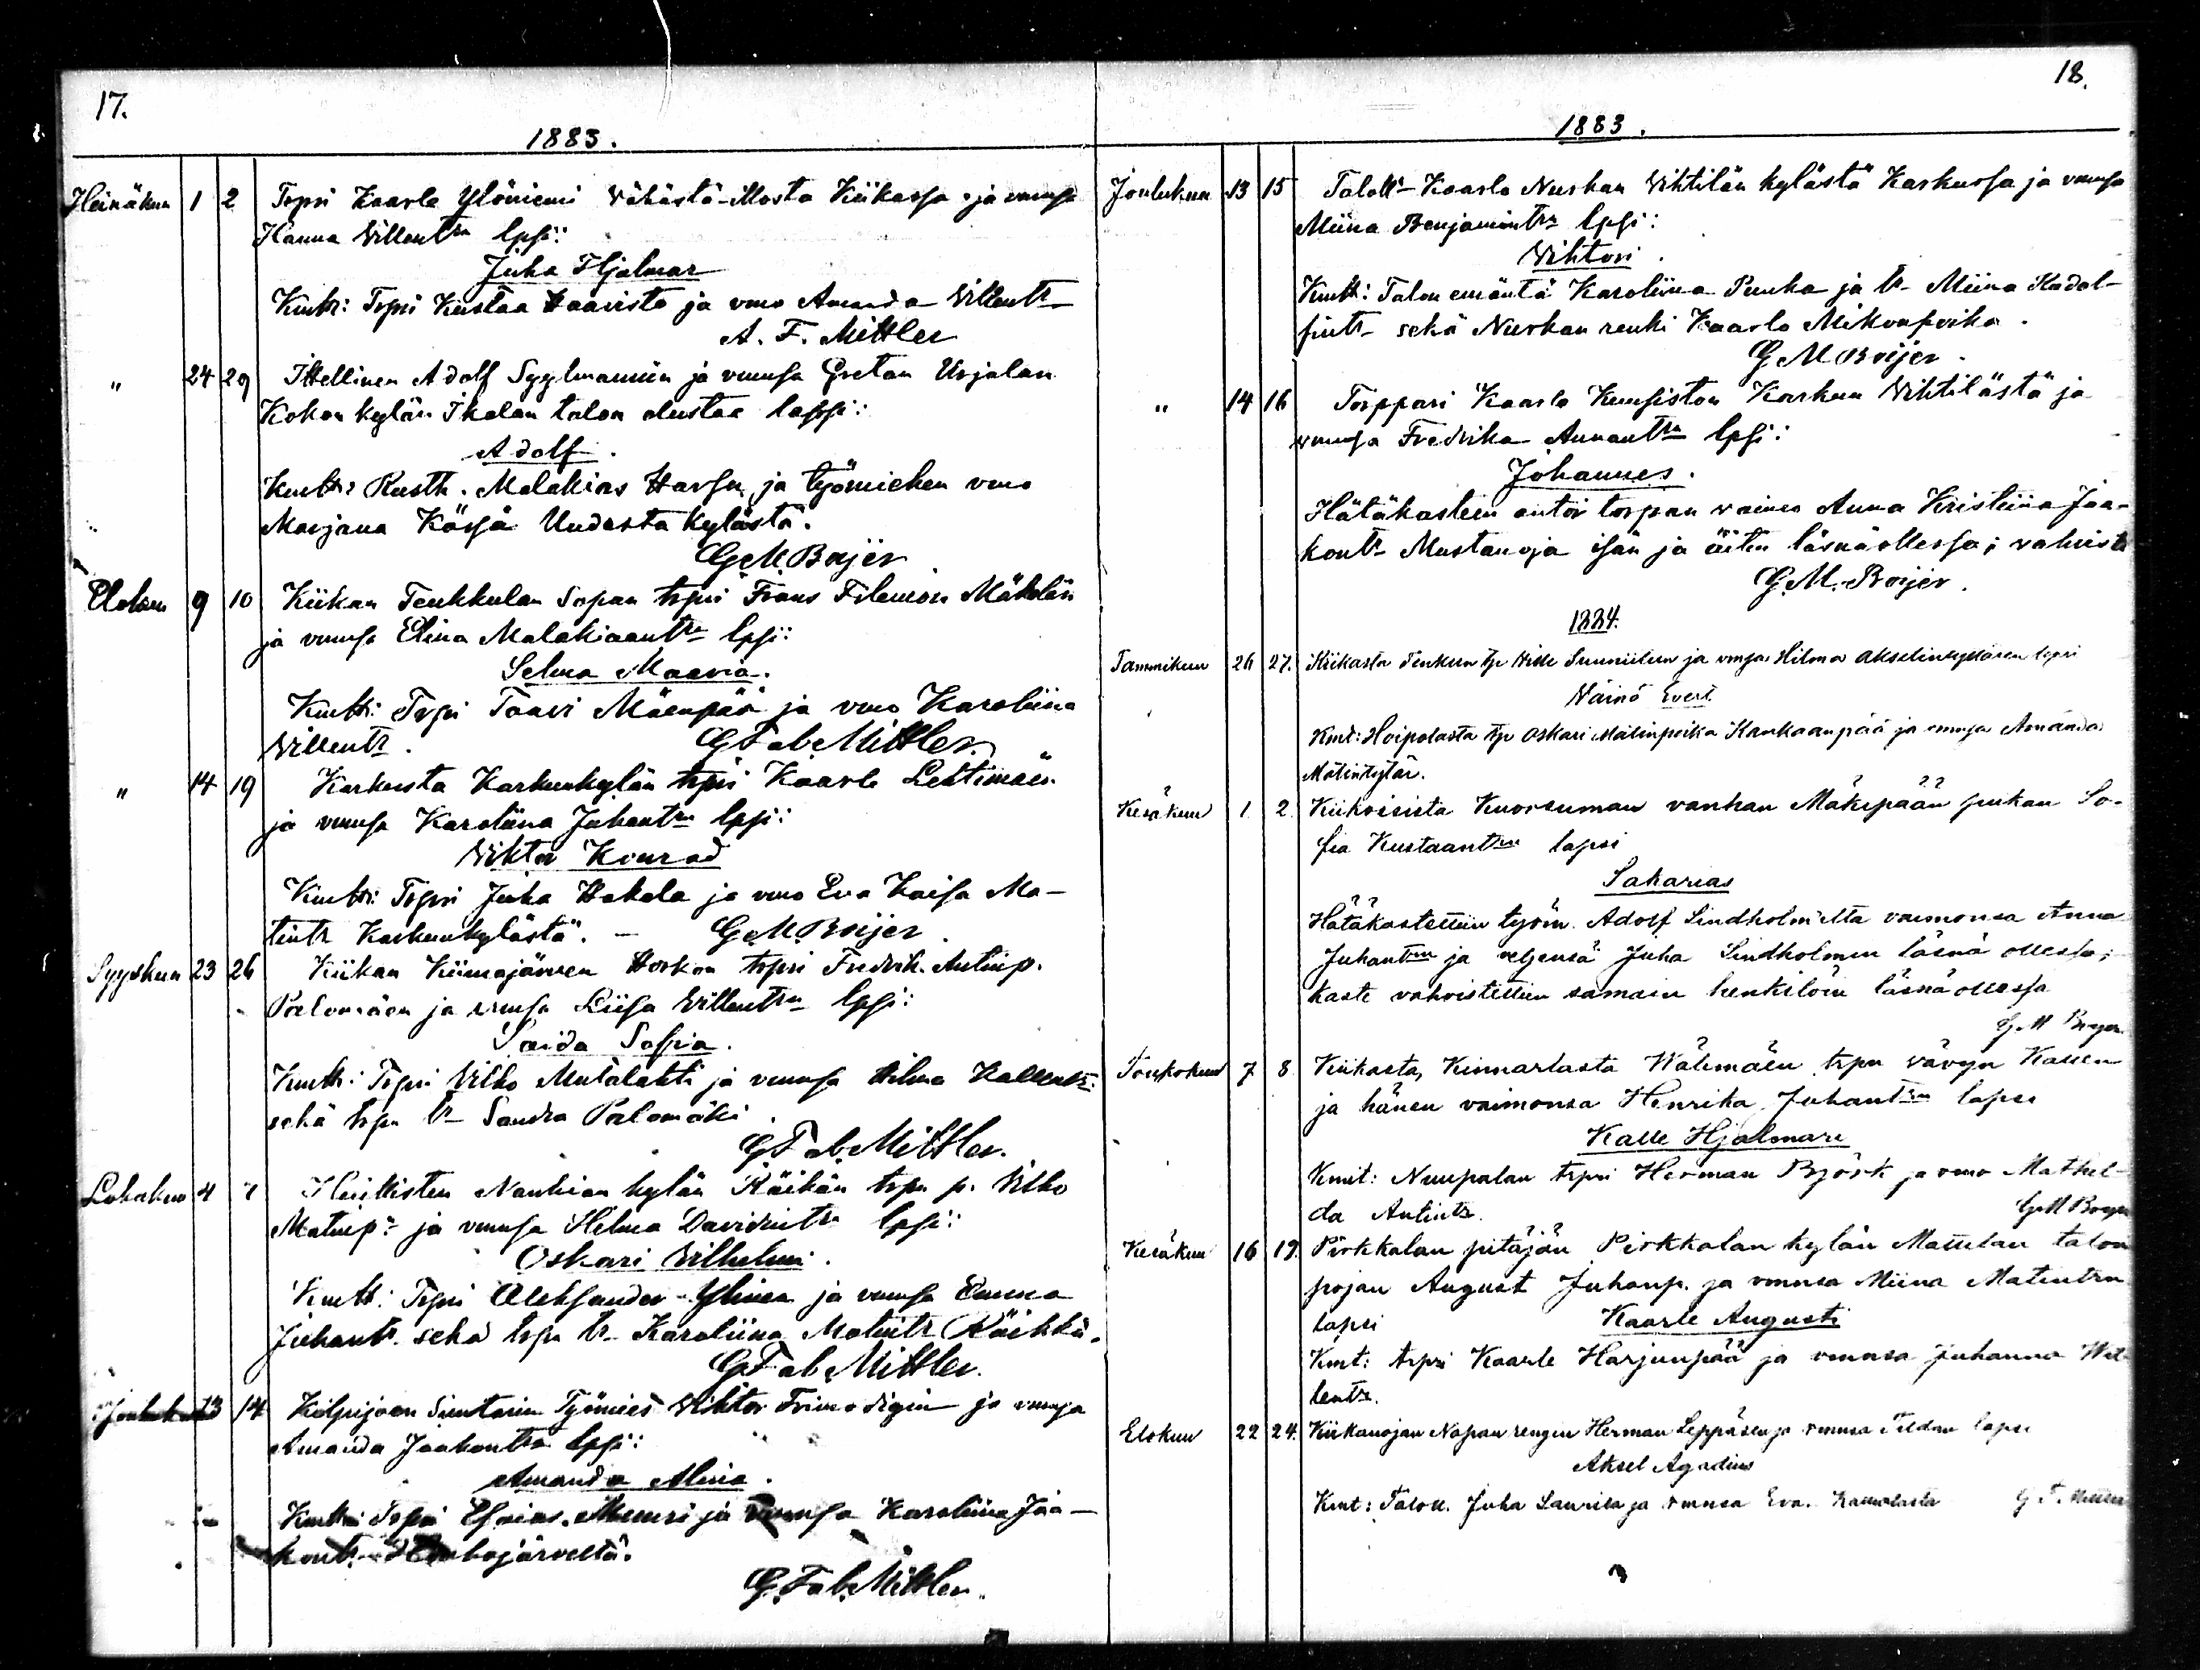 17.
1883.
Heinäkuu 1 2 Trpri Kaarle Ylöniemi Vähästä-Mosta Kiikassa ja vmnsa
Hanna Villentrn lpsi:
Juha Hjalmar
Kmtt: Trpri Kustaa Haavisto ja vmo Amanda Villentr
A. F. Mittler
" 24 29 Itsellinen Adolf Syylmannin ja vmnsa Gretan Urjalan
Kokon kylän Ikolan talon alustaa lapsi:
Adolf.
Kmtt: Rusth. Malakias Harsu ja työmiehen vmo
Marjana Kässä Uudesta kylästä.
G M Boijer
Elokuu 9 10 Kiikan Teukkulan Sopan trpri Frans Filemon Mäkelän
ja vmnsa Elina Malakiaantr lpsi:
Selma Maaria.
Kmtt: Trpri Taavi Mäenpää ja vmo Karoliina
Villentr. G Fab. Mittler.
" 14 19 Karkusta Karkunkylän trpri Kaarle Lehtimäen
ja vmnsa Karoliina Juhantrn lpsi:
Viktor Konrad
Kmtt: Trpri Juha Hakala ja vmo Eva Kaisa Ma-
tintr Karkunkylästä. — G M. Boijer
Syyskuu 23 26 Kiikan Kiimajärven Horkon trpri Fredrik Antinp.
Palomäen ja vmnsa Liisa Villentrn lpsi:
Saida Sofia.
Kmtt: Trpri Vilho Mutalahti ja vmnsa Hilma Kallentr
sekä trpn tr Sandra Palomäki.
G Fab. Mittler.
Lokakuu 4 7 Huittisten Nanhian kylän Räikän trpn p. Vilho
Matinp. ja vmnsa Helma Davidintr lpsi:
Oskari Vilhelmi.
Kmtt: Trpri Aleksander Ylinen ja vmnsa Emma
Juhantr. sekä trpn tr Karoliina Matintr Räikkä.
G Fab Mittler.
Joulukuu 13 14 Kilpijoen Suntarin Työmies Viktor Frimodigin ja vmnsa
Amanda Jaakontrn lpsi:
Amanda Alina.
Kmtt: Trpri Esaias ja vmnsa Karoliina Jaa-
kontr
G. Fab. Mittler.
18.
1883.
Joulukuu 13 15 Talol. Kaarlo Nurkan Vihtilän kylästä Karkussa ja vmnsa
Miina Benjamintr lpsi:
Vihtori.
Kmtt: Talon emäntä Karoliina Punka ja tr Miina Kadol-
fintr sekä Nurkan renki Kaarlo Mikonpoika.
G M Boijer.
" 14 16 Torppari Kaarlo Kuusiston Karkun Vihtilästä ja
vmnsa Fredrika Annantrn lpsi:
Johannes.
Hätäkasteen antoi torpan vaimo Anna Kristiina Jaa-
kontr Mustanoja isän ja äitin läsnäollessa; vahvisti
G. M. Boijer.
1884.
Tammikuu 26 27. Kiikasta Teukun trp Ville Sunniilan ja vmnsa Hilma Akselintyttären lapsi
Väinö Evert.
Kmt: Hoipolasta trp Oskari Matinpoika Kankaanpää ja vmnsa Amanda
Matintytär.
Kesäkuu 1 2. Kiikoisista Kuorsuman vanhan Mäkipään piikan So-
fia Kustaantrn lapsi
Sakarias
Hätäkastettiin työm. Adolf Lindholm'ilta vaimonsa Anna
Juhantrn ja veljensä Juha Lindholmin läsnä ollessa;
kaste vahvistettiin samain henkilöin läsnä ollessa
G M Boijer.
Toukokuu 7 8 Kiikasta, Kinnarlasta Wälimäen trpn vävyn Kallen
ja hänen vaimonsa Henrika Juhantrn lapsi
Kalle Hjalmari
Kmit: Nuupalan trpri Herman Björk ja vmo Mathil-
da Antintr. G M Boijer
Kesäkuu 16 19. Pirkkalan pitäjän Pirkkalan kylän Mattilan talon
pojan August Juhanp. ja vmnsa Miina Matintrn
lapsi Kaarle Augusti
Kmt: trpri Kaarle Harjunpää ja vmnsa Juhanna Wil-
lentr.
Elokuu 22 24. Kiikanojan Napan rengin Herman Leppäsen ja vmnsa Tildan lapsi
Aksel Agadius
Kmt: Taloll. Juha Laurila ja vmnsa Eva. G. F. Mittler